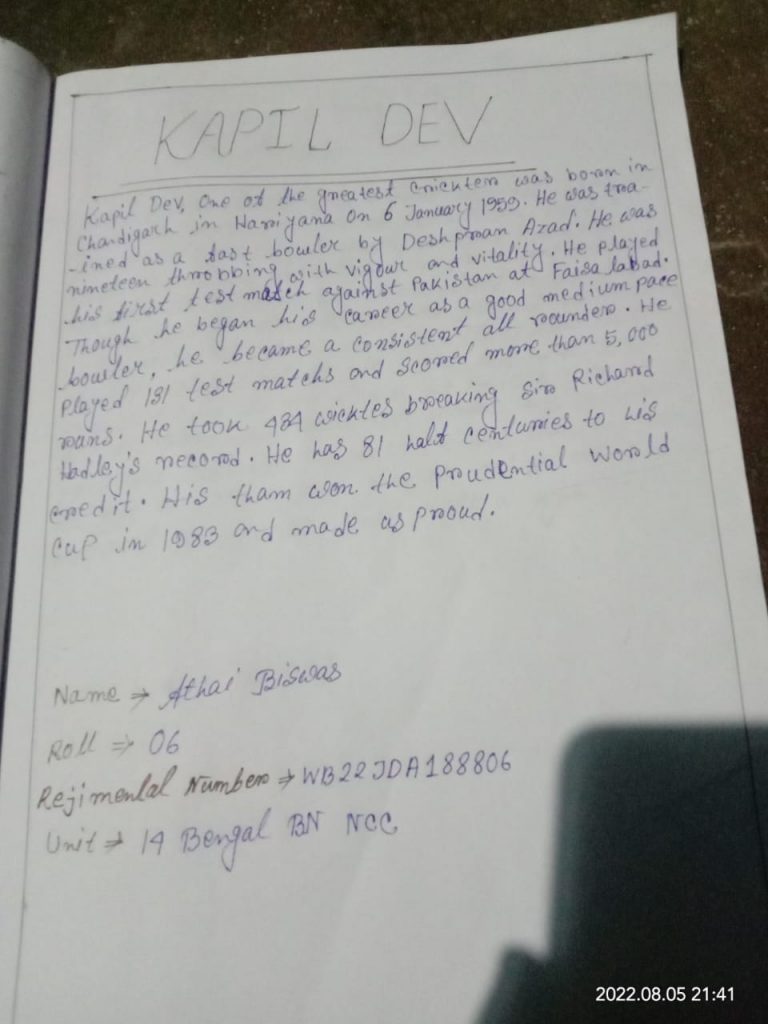 KAPIL DEV
Kapil Dev, One of the greatest Crickters was born in
Chandigarh in Hariyana on 6 January 1959. He was tra-
-ined as a fast bowler by Deshprean Azad. He was
nineteen throbbing with vigour and vitality. He played
his first test match against Pakistan at Faisa labad.
Though he began his career as a good medium pace
bowler, he became a consistent all rounder. He
Played 131 test matchs and scored more than 5,000
runs. He took 434 wicktes breaking Sir Richard
Hadley's record. He has 81 half centuries to his
credit. His tham won the Prudential World
Cup in 1983 and made us proud.
Name → Athai Biswas
Roll ⇒ 06
Rejimental Number → WB22JDA188806
Unit → 14 Bengal BN NCC
2022.08.05 21:41